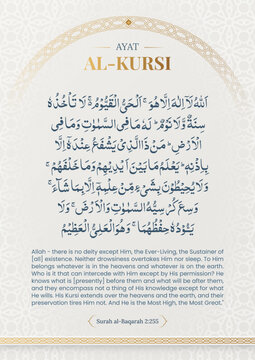 AYAT
AL-KURSI
اَللّٰهُ لَآ اِلٰهَ اِلَّا هُوَۚ اَلْحَيُّ الْقَيُّوْمُ ەۚ لَا تَأْخُذُهٗ
سِنَةٌ وَّلَا نَوْمٌۗ لَهٗ مَا فِى السَّمٰوٰتِ وَمَا فِى
الْاَرْضِۗ مَنْ ذَا الَّذِيْ يَشْفَعُ عِنْدَهٗٓ اِلَّا
بِاِذْنِهٖۗ يَعْلَمُ مَا بَيْنَ اَيْدِيْهِمْ وَمَا خَلْفَهُمْۚ
وَلَا يُحِيْطُوْنَ بِشَيْءٍ مِّنْ عِلْمِهٖٓ اِلَّا بِمَا شَاۤءَۚ
وَسِعَ كُرْسِيُّهُ السَّمٰوٰتِ وَالْاَرْضَۚ وَلَا
يَـُٔوْدُهٗ حِفْظُهُمَاۚ وَهُوَ الْعَلِيُّ الْعَظِيْمُ
Allah - there is no deity except Him, the Ever-Living, the Sustainer of
[all] existence. Neither drowsiness overtakes Him nor sleep. To Him
belongs whatever is in the heavens and whatever is on the earth.
Who is it that can intercede with Him except by His permission? He
knows what is [presently] before them and what will be after them,
and they encompass not a thing of His knowledge except for what
He wills. His Kursi extends over the heavens and the earth, and their
preservation tires Him not. And He is the Most High, the Most Great."
Surah al-Baqarah 2:255